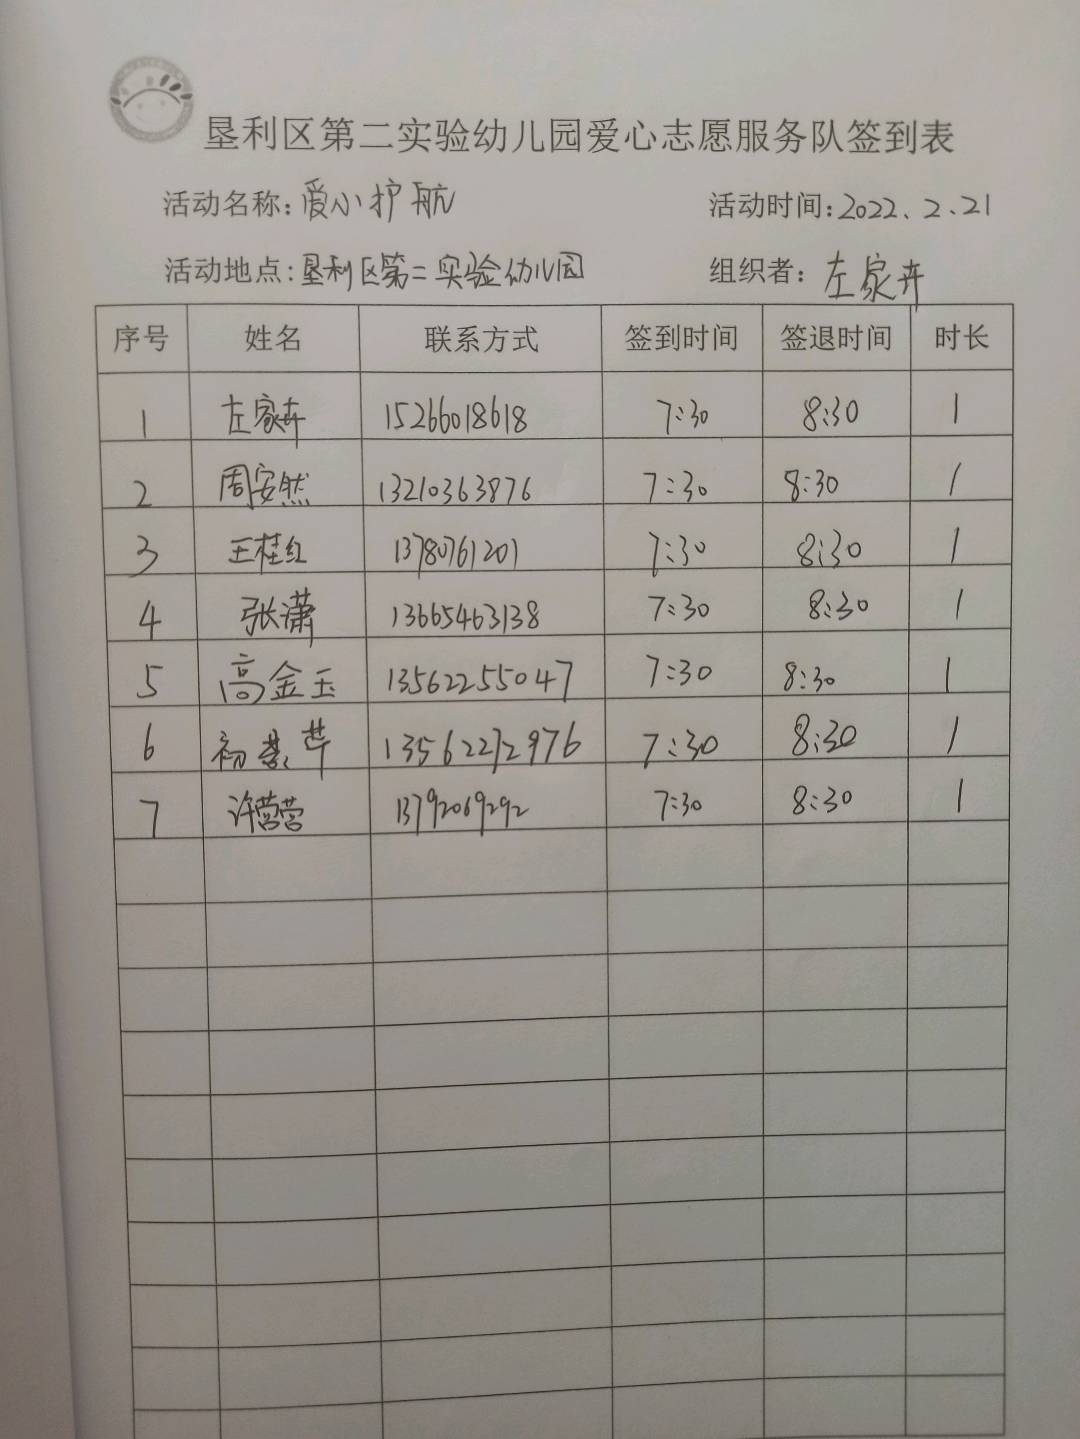 垦利区第二实验幼儿园爱心志愿服务队签到表
活动名称:爱小护航 活动时间:2022.2.21
活动地点:垦利区第二实验幼儿园 组织者:左家卉
序号 姓名 联系方式 签到时间 签退时间 时长
1 左家卉 15266018618 7:30 8:30 1
2 周安然 13210363876 7:30 8:30 1
3 王桂红 13780761201 7:30 8:30 1
4 张潇 13665463138 7:30 8:30 1
5 高金玉 13562255047 7:30 8:30 1
6 初 13562272976 7:30 8:30 1
7 许营营 13792069292 7:30 8:30 1